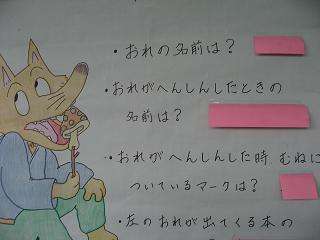 ・おれの名前は？
・おれがへんしんしたときの
名前は？
・おれがへんしんした時 むねに
ついているマークは？
・左のおれが出てくる本の